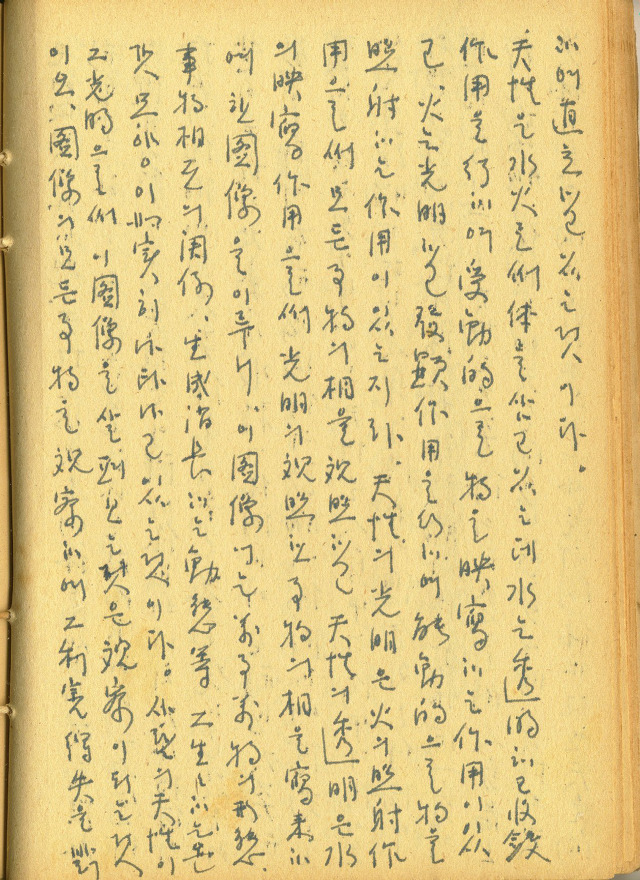 하여 直立하고 있는 것이다.
天性은 水火로써 体를 삼고 있는데 水는 透明하고 收斂
作用을 行하여 受動的으로 物을 映寫하는 作用이 있
고, 火는 光明하고 發顯作用을 行하여 能動的으로 物을
照射하는 作用이 있는지라, 天性의 光明은 火의 照射作
用으로써 모든 事物의 相을 觀照하고 天性의 透明은 水
의 映寫作用으로써 光明의 觀照한 事物의 相을 寫来하
여 한 圖像을 이루니, 이 圖像에는 萬事萬物의 形態,
事物相互의 関係, 生成消長하는 動態等 그 生生하는
것 모양이 如実히 나타나고 있는 것이다. 사람의 天性이
그 光明으로써 이 圖像을 살펴보는 것은 觀察이라는 것
이오, 圖像의 모든 事物을 觀察하여 그 利害得失을